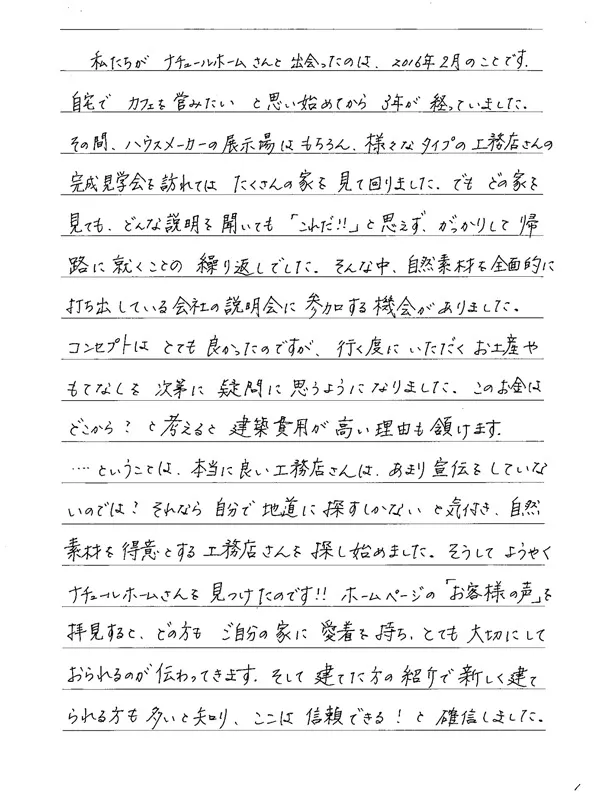 私たちが ナチュールホームさんと出会ったのは、2016年2月のことです.
自宅で カフェを営みたい と思い始めてから 3年が 経っていました.
その間、ハウスメーカーの展示場はもちろん、様々なタイプの工務店さんの
完成見学会を訪れては たくさんの家を 見て回りました. でも どの家を
見ても、どんな説明を聞いても 「これだ!!」と思えず、がっかりして 帰
路に就くことの 繰り返しでした。そんな中、自然素材を全面的に
打ち出している会社の説明会に 参加する機会がありました.
コンセプトは とても 良かったのですが、行く度に いただく お土産や
もてなしを 次第に 疑問に 思うようになりました. このお金は
どこから? と考えると 建築費用が 高い理由も 頷けます.
‥‥ということは、本当に良い工務店さんは、あまり宣伝をしていな
いのでは? それなら 自分で 地道に探すしかない と気付き、自然
素材を得意とする工務店さんを 探し始めました。そうして ようやく
ナチュールホームさんを 見つけたのです!! ホームページの「お客様の声」を
拝見すると、どの方も ご自分の家に 愛着を 持ち、とても 大切にして
おられるのが 伝わってきます. そして 建てた方の紹介で 新しく建て
られる方も 多いと知り、ここは 信頼できる! と 確信しました.
1